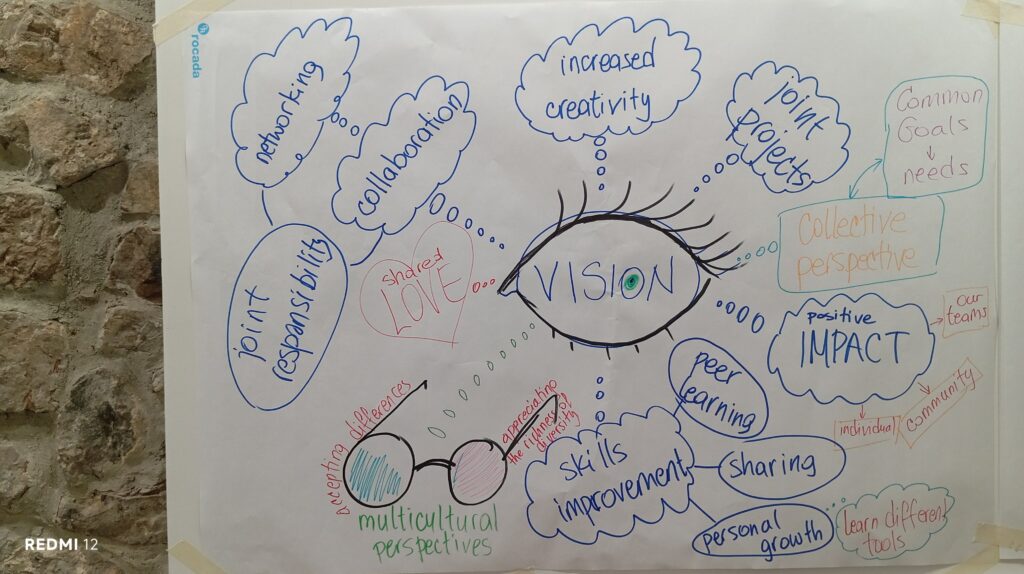 rocada
networking
collaboration
increased
creativity
joint
projects
Common
Goals
needs
Collective
perspective
joint
responsibility
shared
LOVE
VISION
positive
IMPACT
our
teams
community
individual
peer
learning
skills
improvement
sharing
personal
growth
learn different
tools
Accepting differences
appreciating
the richness of
diversity
multicultural
perspectives
REDMI 12